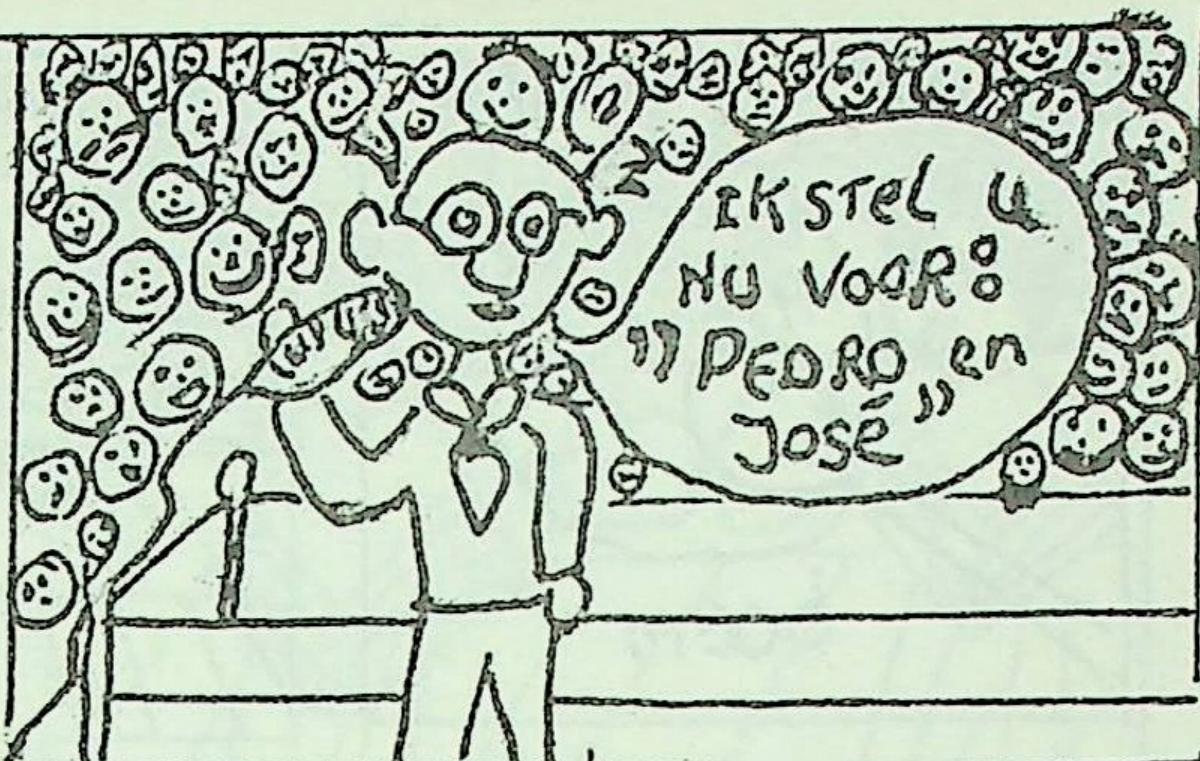 IK STEL U
NU VOOR:
"PEDRO en
JOSÉ"